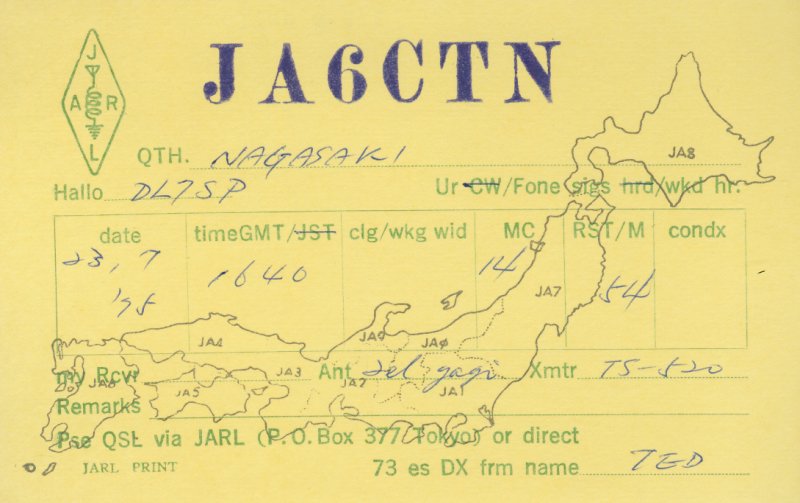 JA6CTN
J
A R
L
QTH. NAGASAKI
JA8
Hallo DL7SP Ur CW/Fone sigs hrd/wkd hr.
date timeGMT/JST clg/wkg wid MC RST/M condx
23, 7 '75 1640 14 54
JA7
JA4 JA9 JAØ
my Rcvr JA3 Ant 2el yagi Xmtr TS-520
JA6 JA5 JA2 JA1
Remarks
Pse QSL via JARL (P.O.Box 377 Tokyo) or direct
JARL PRINT 73 es DX frm name TED